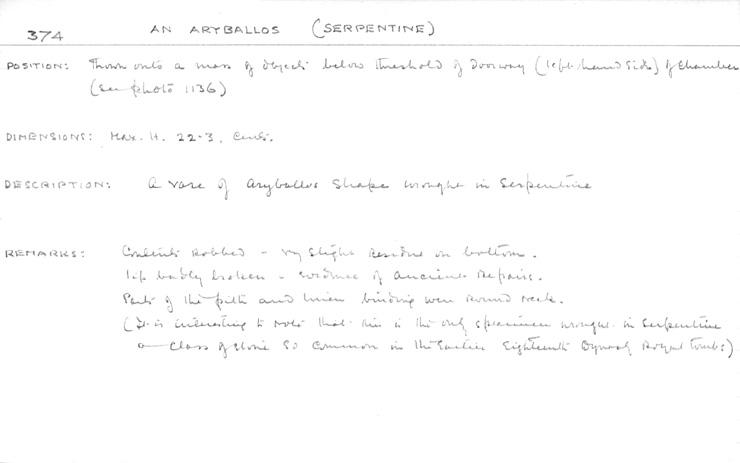 374 AN ARYBALLOS (SERPENTINE)
POSITION: Thrown onto a mass of objects below threshold of Doorway (left-hand side) of Chamber
(see photo 1136)
DIMENSIONS: Max. H. 22.3. Cents.
DESCRIPTION: A vase of Aryballos shape wrought in Serpentine
REMARKS: Contents robbed - very slight residue on bottom.
Lip badly broken - evidence of ancient repairs.
Parts of the pith and linen binding were round neck.
(It is interesting to note that this is the only specimen wrought in Serpentine
a class of stone so common in the Earlier Eighteenth Dynasty Royal tombs)